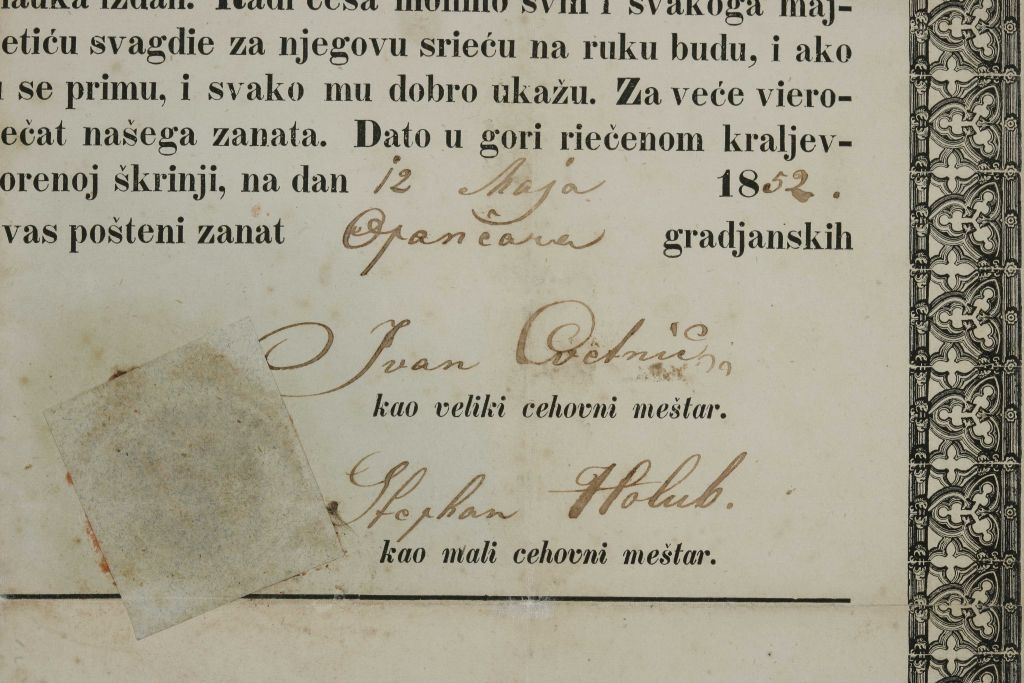 auka izdan. Radi česa molimo svih i svakoga maj-
etiću svagdie za njegovu srieću na ruku budu, i ako
se primu, i svako mu dobro ukažu. Za veće viero-
ečat našega zanata. Dato u gori riečenom kraljev-
orenoj škrinji, na dan 12 Maja 1852.
vas pošteni zanat Opančara gradjanskih
Ivan Cvetnić
kao veliki cehovni meštar.
Stephan Holub.
kao mali cehovni meštar.